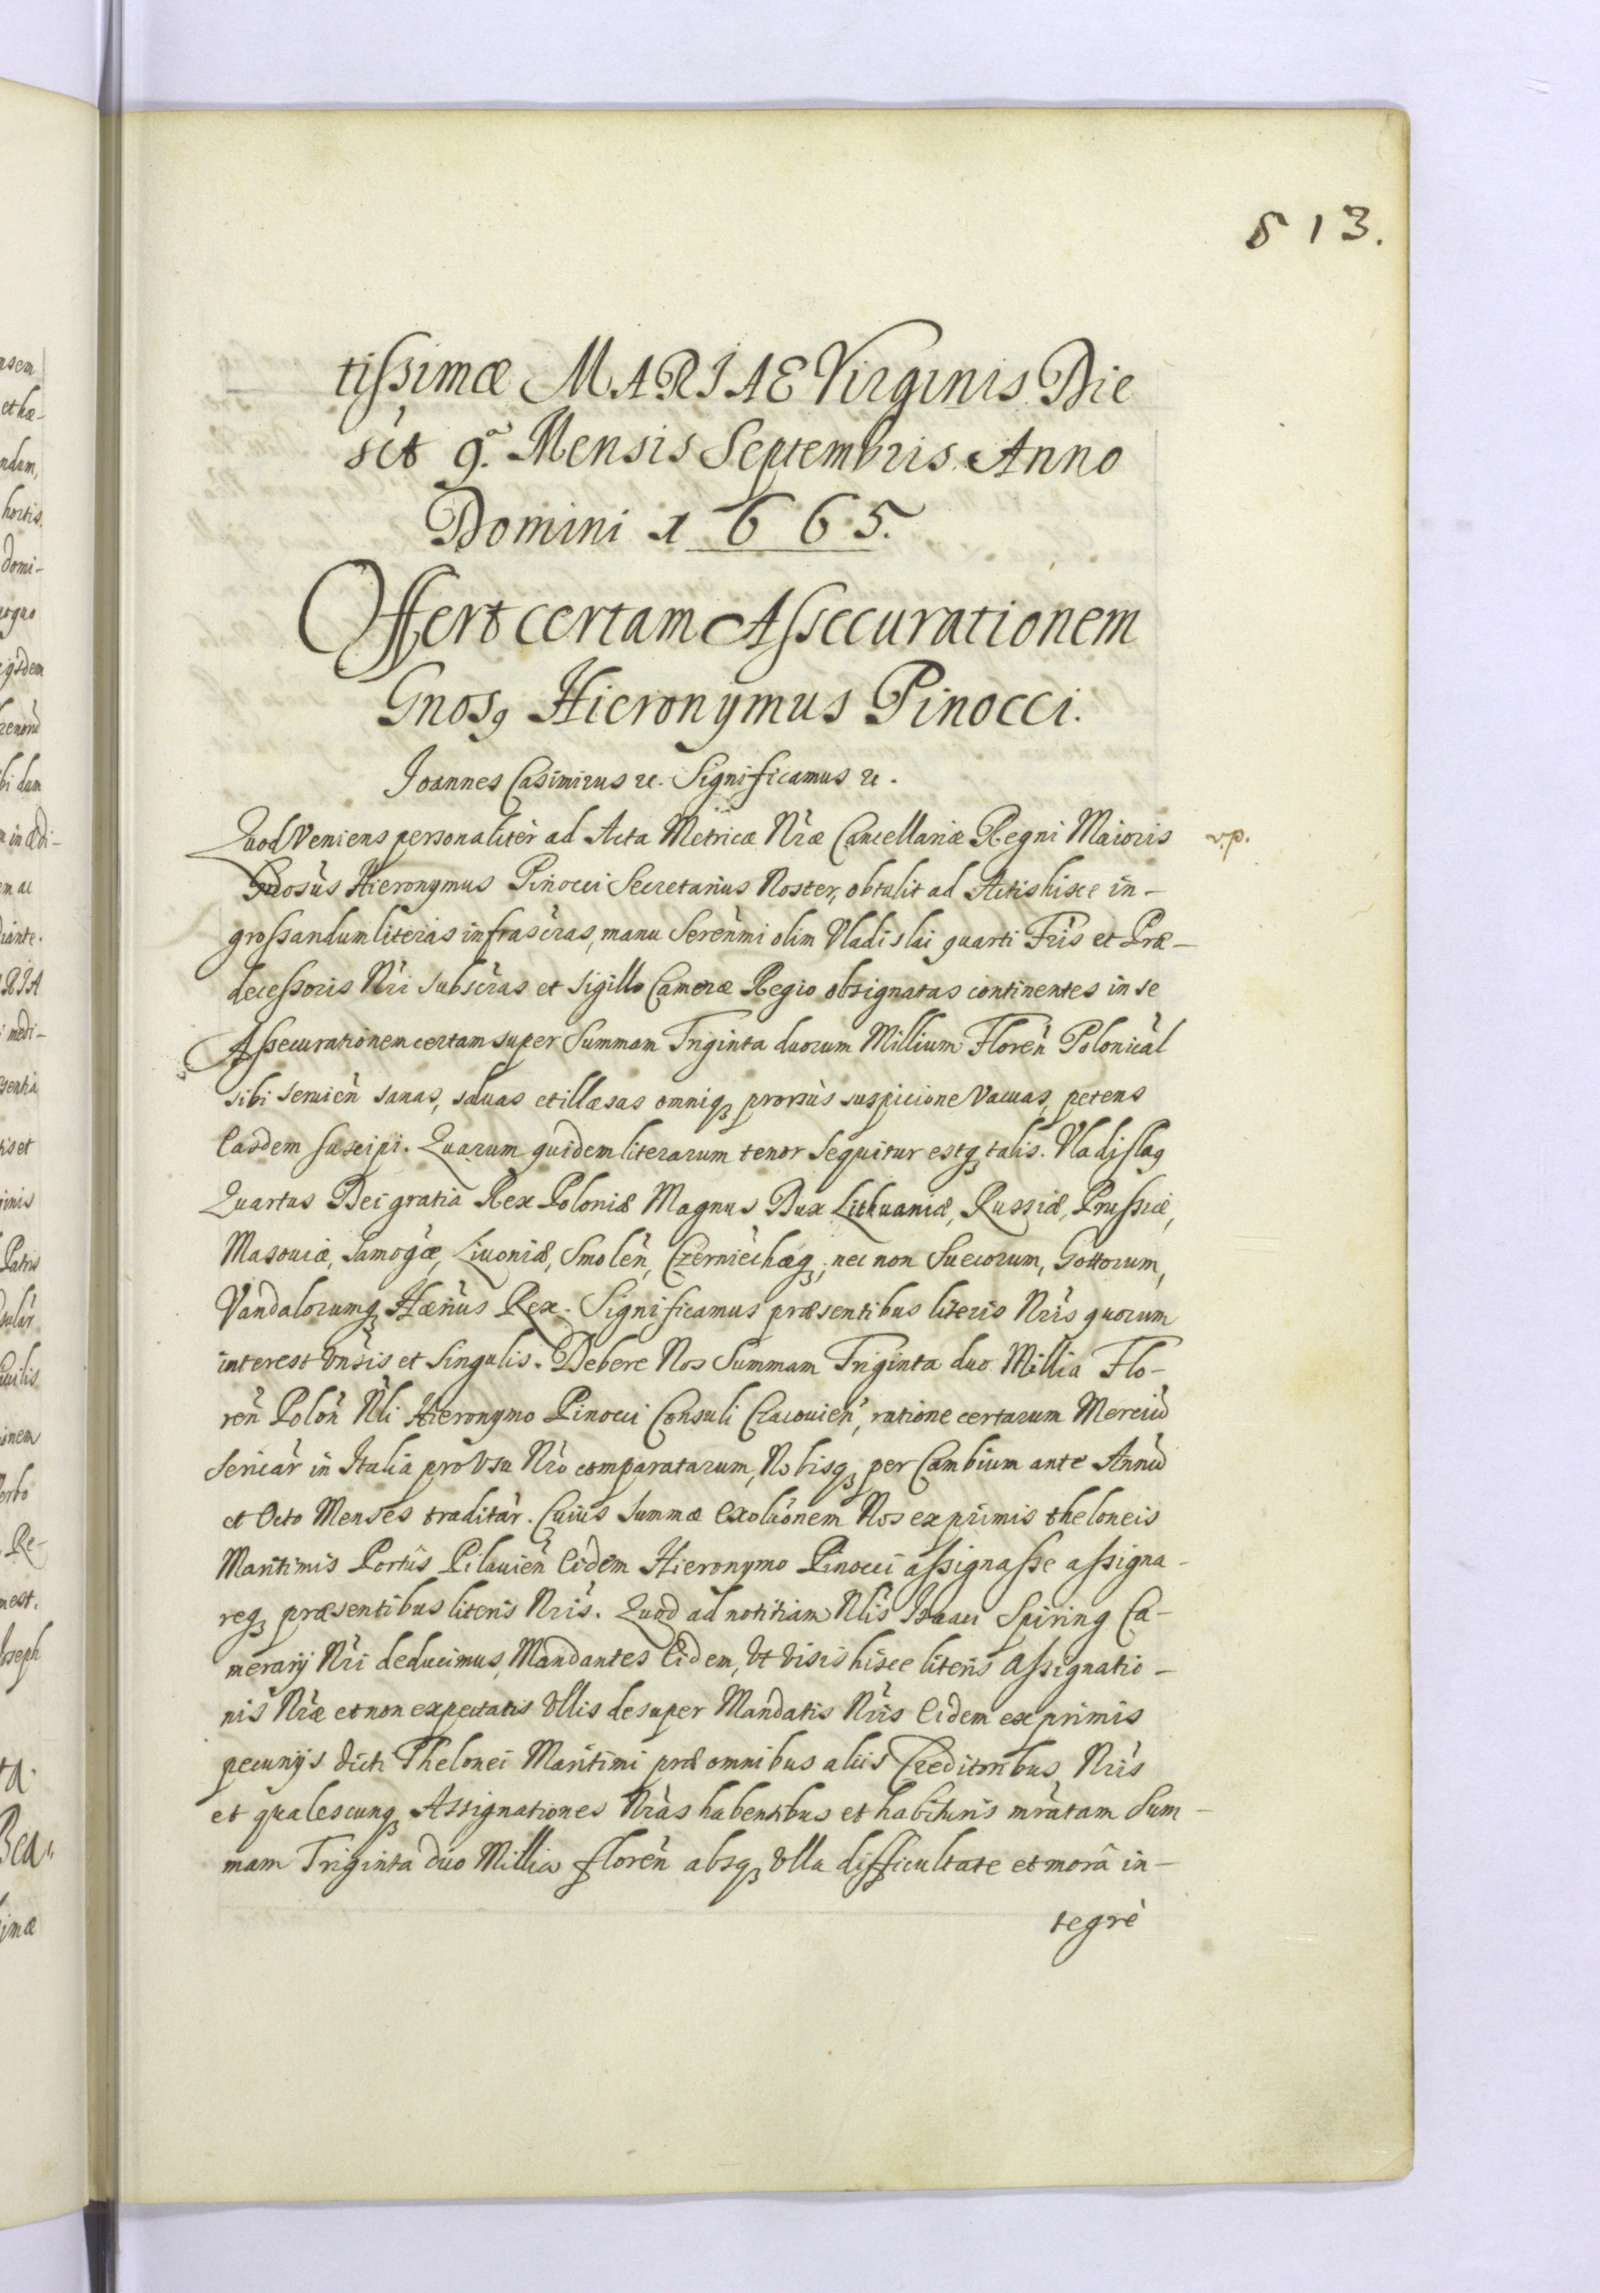 513.
tissimæ MARIAE Virginis Die
sct 9.ª Mensis Septembris. Anno
Domini 1665.
Offert certam Assecurationem
Gnosꝯ Hieronymus Pinocci.
Joannes Casimirus &c. Significamus &c.
Quod Veniens personaliter ad Acta Metricæ Nr̃æ Cancellariæ Regni Maioris v.p.
Gnosus Hieronymus Pinocci Secretarius Noster, obtulit ad Actishisce in-
grossandum literas infrascras, manu Serenmi olim Vladislai quarti Fris et Præ-
decessoris Nri subscras et sigillo Cameræ Regio obsignatas continentes in se
Assecurationem certam super Summam Triginta duorum Millium Floren̄ Polonical
sibi seruien̄ sanas, saluas et illæsas omniqꝫ prorsùs suspicione Vacuas, petens
Easdem suscipi. Quarum quidem literarum tenor sequitur estqꝫ talis. Vladislaꝯ
Quartus Dei gratia Rex Poloniæ Magnus Dux Lithuaniæ, Russiæ, Prussiæ,
Masouiæ, Samogæ, Liuoniæ, Smolen̄, Czerniechæqꝫ, nec non Suecorum, Gottorum,
Vandalorumqꝫ Hærius Rex. Significamus præsentibus literis Nris quorum
interest Vnsis et Singulis. Debere Nos Summam Triginta duo Millia Flo-
ren̄ Polon̄ Nli Hieronymo Pinocci Consuli Cracouien̄, ratione certarum Merciū
sericar̄ in Italia pro Vsu Nro comparatarum, Nobisqꝫ per Cambium ante Annū
et Octo Menses traditar̄. Cuius summæ exolūonem Nos ex primis theloneis
Maritimis Portûs Pilauien̄ Eidem Hieronymo Pinocci assignasse assigna-
reqꝫ præsentibus literis Nris. Quod ad notitiam Nlis Isaaci Spiring Ca-
merarij Nri deducimus, Mandantes Eidem, Vt Visis hisce literis Assignatio-
nis Nræ et non expectatis Vllis desuper Mandatis Nris Eidem ex primis
pecunijs dicti Thelonei Maritimi præ omnibus aliis Creditoribus Nris
et qualescunqꝫ Assignationes Nras habentibus et habituris mratam Sum-
mam Triginta duo Millia floren̄ absqꝫ Vlla difficultate et morâ in-
tegrè